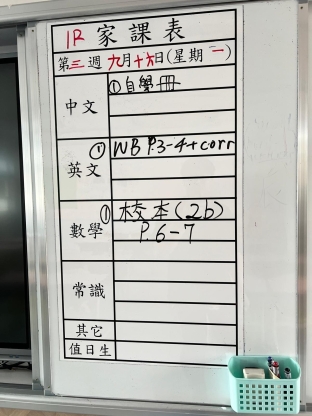 1R 家課表
第三週 九月十六日(星期一)
中文 ①自學冊
英文 ① WB P.3-4+corr
數學 ① 校本(2b)
P.6-7
常識
其它
值日生